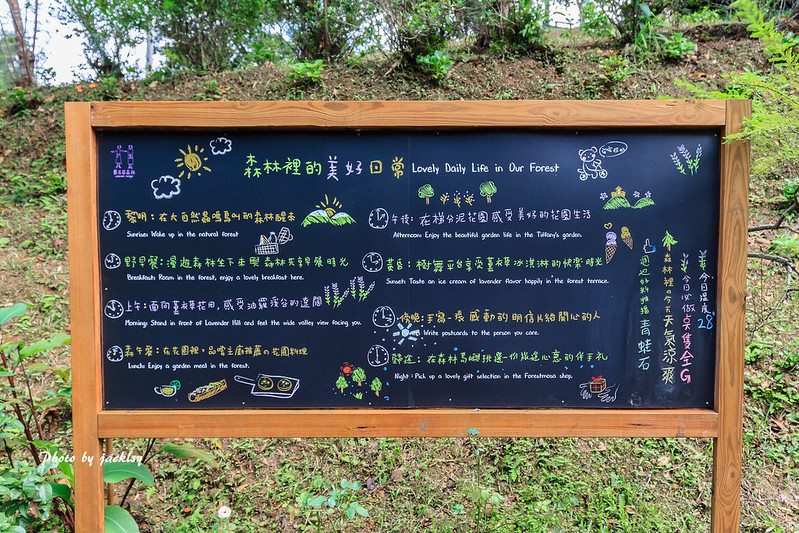 森林裡的美好日常 Lovely Daily Life in Our Forest
黎明：在大自然蟲鳴鳥叫的森林醒來
Sunrise: Wake up in the natural forest
野早餐：漫遊森林坐下來喫森林野早餐時光
Breakfast: Roam in the forest, enjoy a lovely breakfast here.
上午：面向薰衣草花田，感受油羅溪谷的遼闊
Morning: Stand in front of Lavender Hill and feel the wide valley view facing you.
森午餐：在花園裡，品嚐主廚推薦の花園料理
Lunch: Enjoy a garden meal in the forest.
午後：在梯分花園感受美好的花園生活
Afternoon: Enjoy the beautiful garden life in the Tiffany's garden.
黃昏：樹舞平台享受薰衣草冰淇淋的快樂時光
Sunset: Taste an ice cream of lavender flavor happily in the forest terrace.
手寫一張感動的明信片給關心的人
Write postcards to the person you care.
在森林島嶼挑選一份放進心意的伴手禮
Night: Pick up a lovely gift selection in the Forestmosa shop.
青蛙石
森林裡の今天天氣涼爽
今日必做
今日溫度28°
Photo by jacklsy